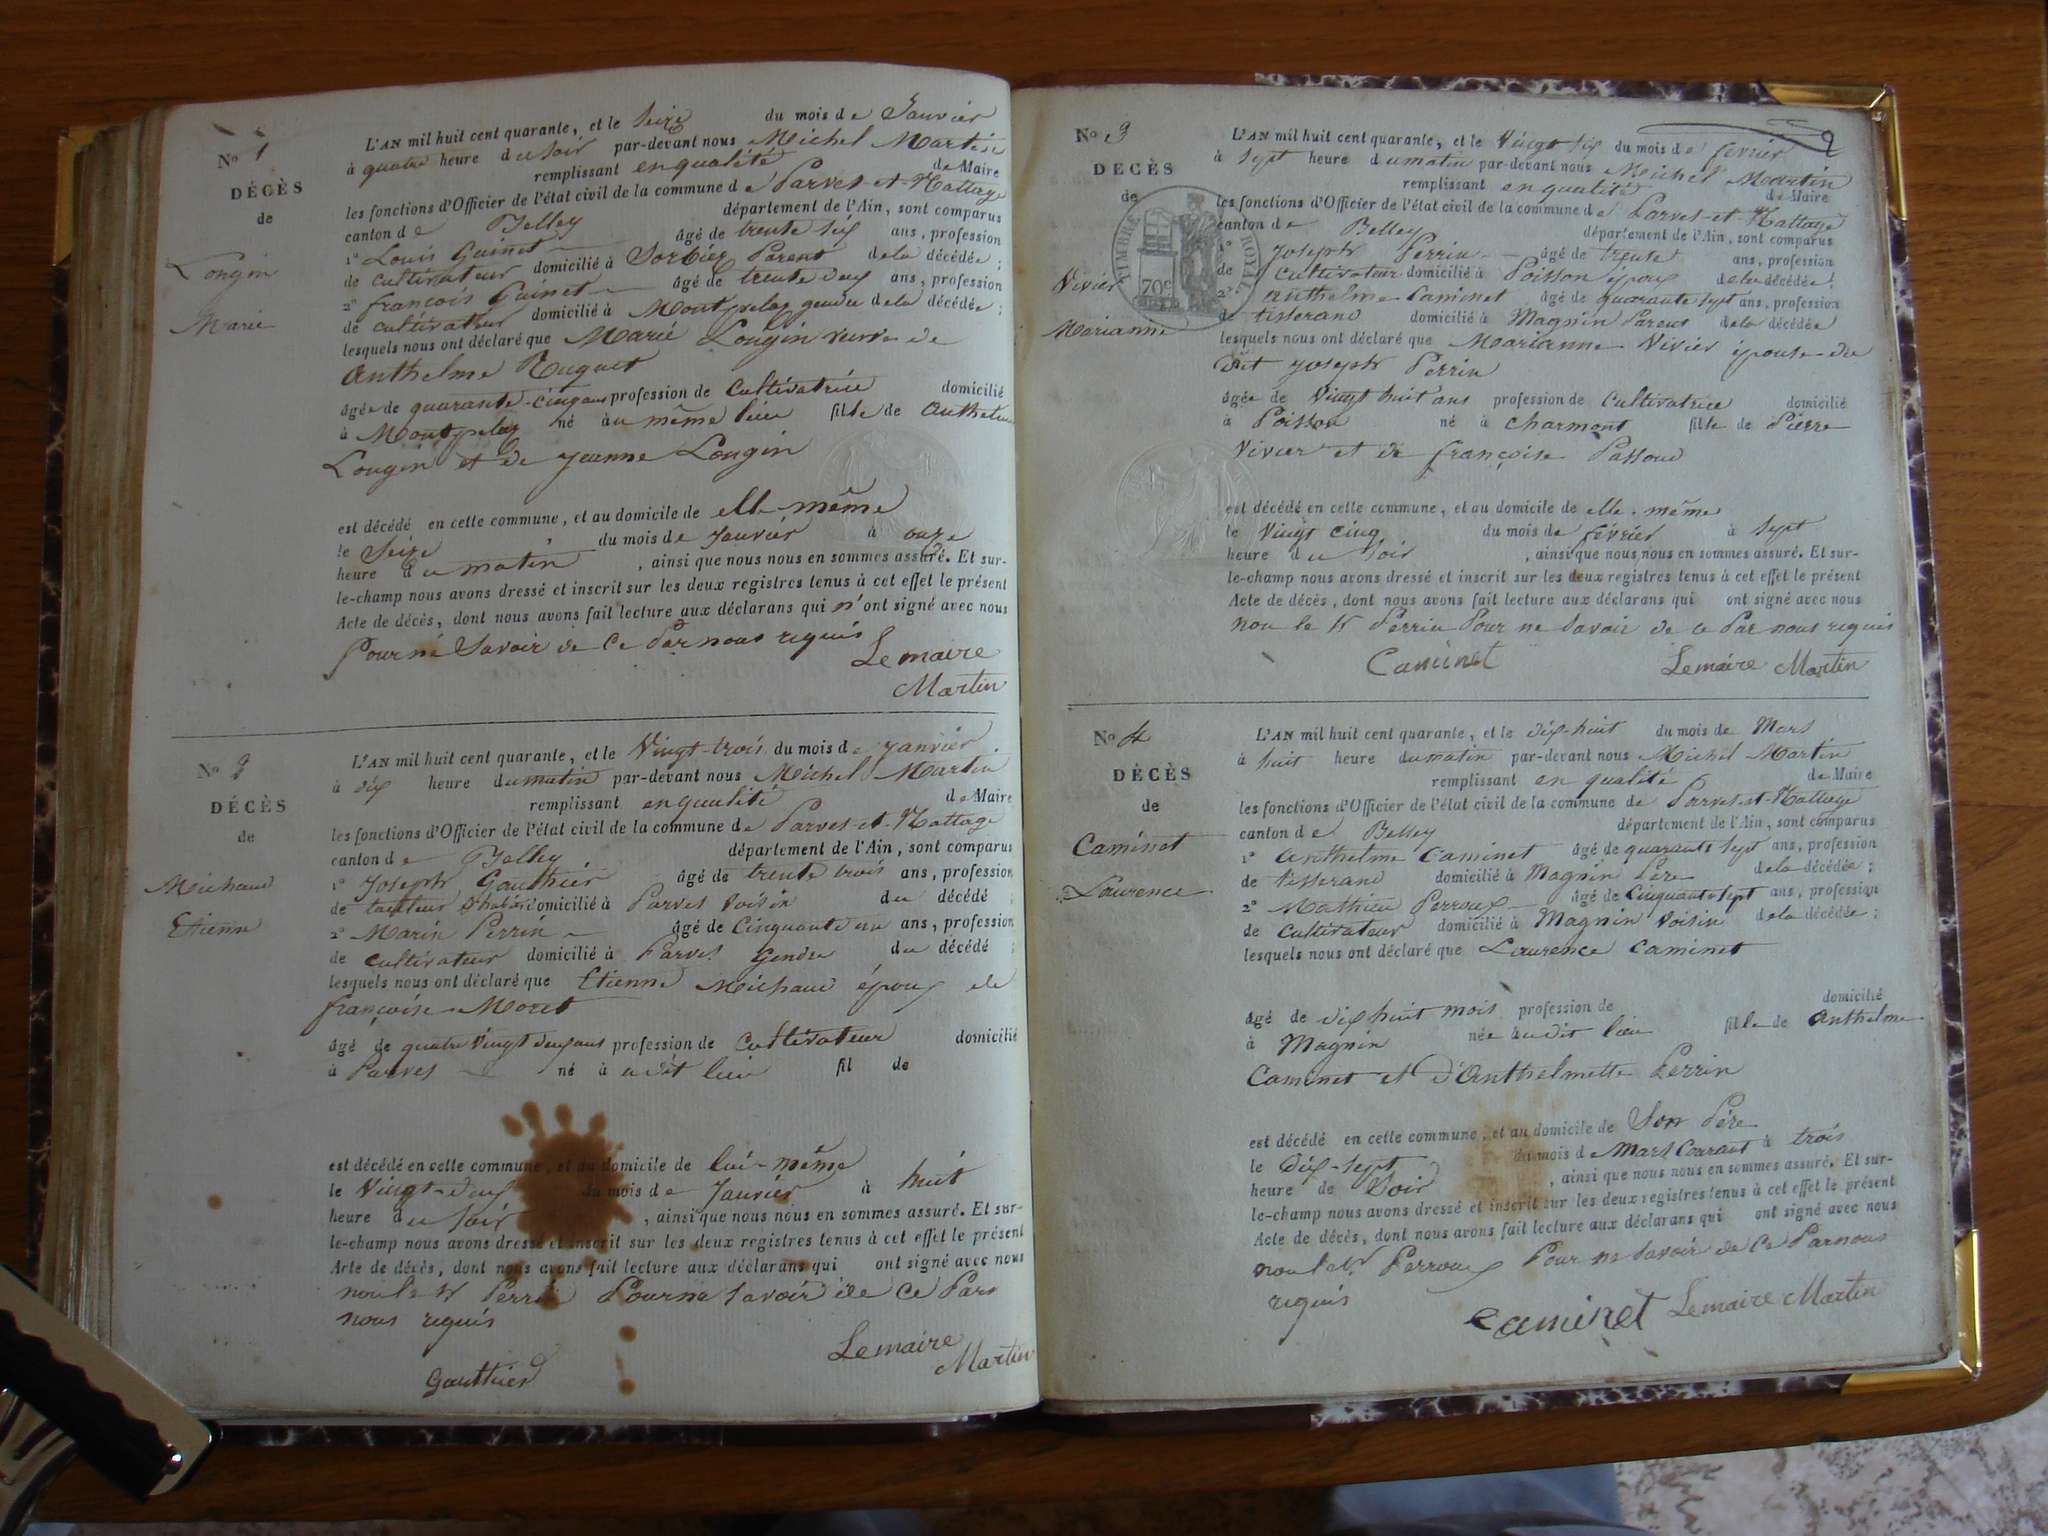 No 1
DÉCÈS
de
Longin
Marie
L'AN mil huit cent quarante, et le Seize du mois de Janvier
à quatre heure du Soir par-devant nous Michel Martin
remplissant en qualité de Maire
les fonctions d'Officier de l'état civil de la commune de Parves-et-Nattage
canton de Belley département de l'Ain, sont comparus
1° Louis Guinet âgé de trente six ans, profession
de cultivateur domicilié à Sorbier Parent de la décédée;
2° françois Guinet âgé de trente deux ans, profession
de cultivateur domicilié à Montpelaz gendre de la décédée;
lesquels nous ont déclaré que Marie Longin veuve de
Anthelme Huguet
âgée de quarante-cinq ans profession de Cultivatrice domicilié
à Montpelaz né au même lieu fille de Anthelme
Longin et de Jeanne Longin
est décédé en cette commune, et au domicile de elle même
le Seize du mois de Janvier à onze
heure du matin, ainsi que nous nous en sommes assuré. Et sur-
le-champ nous avons dressé et inscrit sur les deux registres tenus à cet effet le présent
Acte de décès, dont nous avons fait lecture aux déclarans qui n'ont signé avec nous
Pour ne Savoir de Ce Par nous requis
Lemaire
Martin
No 2
DÉCÈS
de
Michaud
Etienne
L'AN mil huit cent quarante, et le Vingt-trois du mois de Janvier
à dix heure du matin par-devant nous Michel Martin
remplissant en qualité de Maire
les fonctions d'Officier de l'état civil de la commune de Parves-et-Nattage
canton de Belley département de l'Ain, sont comparus
1° Joseph Gauthier âgé de trente trois ans, profession
de tailleur d'habit domicilié à Parves Voisin du décédé;
2° Marin Perrin âgé de Cinquante un ans, profession
de cultivateur domicilié à Parves Gendre du décédé;
lesquels nous ont déclaré que Etienne Michaud époux de
françoise Moret
âgé de quatre Vingt deux ans profession de Cultivateur domicilié
à Parves né à udit lieu fil de
est décédé en cette commune, et au domicile de lui-même
le Vingt-deux du mois de Janvier à huit
heure du Soir, ainsi que nous nous en sommes assuré. Et sur-
le-champ nous avons dressé et inscrit sur les deux registres tenus à cet effet le présent
Acte de décès, dont nous avons fait lecture aux déclarans qui ont signé avec nous
non le Sr Perrin Pour ne Savoir de Ce Par
nous requis
Lemaire
Martin
Gauthier
2
No 3
DÉCÈS
de
TIMBRE ROYAL
70c
Vivier
Marianne
L'AN mil huit cent quarante, et le Vingt Six du mois de fevrier
à Sept heure du matin par-devant nous Michel Martin
remplissant en qualité de Maire
les fonctions d'Officier de l'état civil de la commune de Parves-et-Nattage
canton de Belley département de l'Ain, sont comparus
1° Joseph Perrin âgé de trente ans, profession
de Cultivateur domicilié à Poisson époux de la décédée;
2° Anthelme Caminet âgé de quarante sept ans, profession
de tisserand domicilié à Magnin Parent de la décédée
lesquels nous ont déclaré que Marianne Vivier épouse du
dit Joseph Perrin
âgée de Vingt huit ans profession de Cultivatrice domicilié
à Poisson né à Charmont fille de Pierre
Vivier et de françoise Passoud
est décédé en cette commune, et au domicile de elle-même
le Vingt cinq du mois de février à Sept
heure du Soir, ainsi que nous nous en sommes assuré. Et sur-
le-champ nous avons dressé et inscrit sur les deux registres tenus à cet effet le présent
Acte de décès, dont nous avons fait lecture aux déclarans qui ont signé avec nous
non le Sr Perrin Pour ne Savoir de ce Par nous requis
Caminet Lemaire Martin
No 4
DÉCÈS
de
Caminet
Laurence
L'AN mil huit cent quarante, et le dix-huit du mois de Mars
à huit heure du matin par-devant nous Michel Martin
remplissant en qualité de Maire
les fonctions d'Officier de l'état civil de la commune de Parves-et-Nattage
canton de Belley département de l'Ain, sont comparus
1° Anthelme Caminet âgé de quarante sept ans, profession
de tisserand domicilié à Magnin Père de la décédée;
2° Mathieu Perroux âgé de Cinquante Sept ans, profession
de Cultivateur domicilié à Magnin Voisin de la décédée;
lesquels nous ont déclaré que Laurence Caminet
âgé de dix huit mois profession de domicilié
à Magnin née audit lieu fille de Anthelme
Caminet et d'Anthelmette Perrin
est décédé en cette commune, et au domicile de Son Père
le Dix-Sept du mois de Mars Courant à trois
heure de Soir, ainsi que nous nous en sommes assuré. Et sur-
le-champ nous avons dressé et inscrit sur les deux registres tenus à cet effet le présent
Acte de décès, dont nous avons fait lecture aux déclarans qui ont signé avec nous
non le Sr Perroux Pour ne Savoir de Ce Par nous
requis
Caminet Lemaire Martin